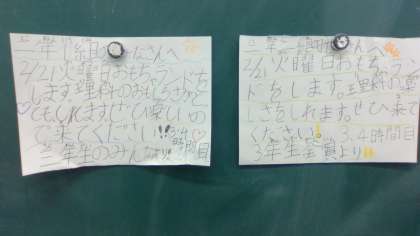 二年2組のみなさんへ
2/21火曜日おもちゃランドを
します。理科のおもしろさが
とてもしれます。ぜひ楽しいの
で来てください!!! 3,4時間目
三年生のみんなより!!
二年三組のみなさんへ
2/21火曜日おもちゃラン
ドをします。理科のおも
しろさをしれます。ぜひ来て
ください! 3.4時間目
3年生全員より!!